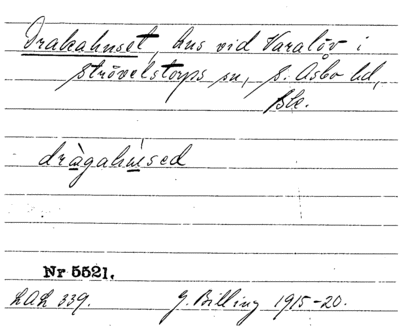 Drakahuset, hus vid Varalöv i
Strövelstorps sn, S. Åsbo hd,
Sk.
dràgahu̇sed
Nr 5521.
LAL 339. G. Billing 1915-20.